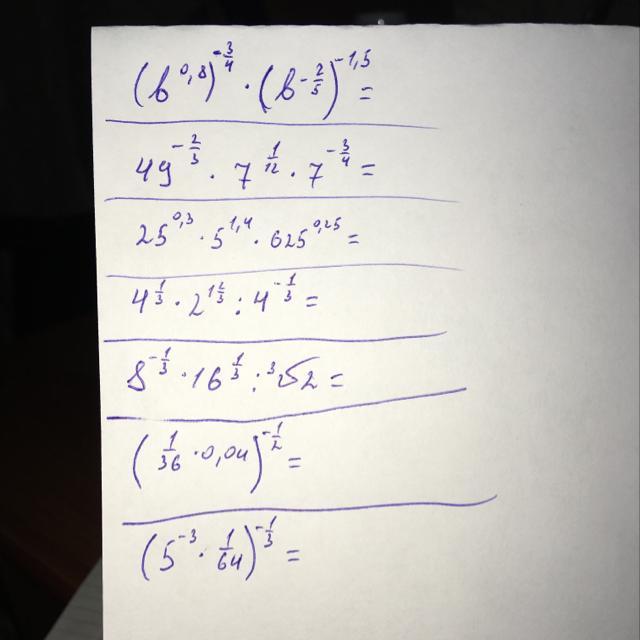 (b^0,8)^-3/4 · (b^-2/5)^-1,5 =
49^-2/3 · 7^1/12 · 7^-3/4 =
25^0,3 · 5^1,4 · 625^0,25 =
4^1/3 · 2^1 2/3 : 4^-1/3 =
8^-1/3 · 16^1/3 : ³√2 =
(1/36 · 0,04)^-1/2 =
(5^-3 · 1/64)^-1/3 =